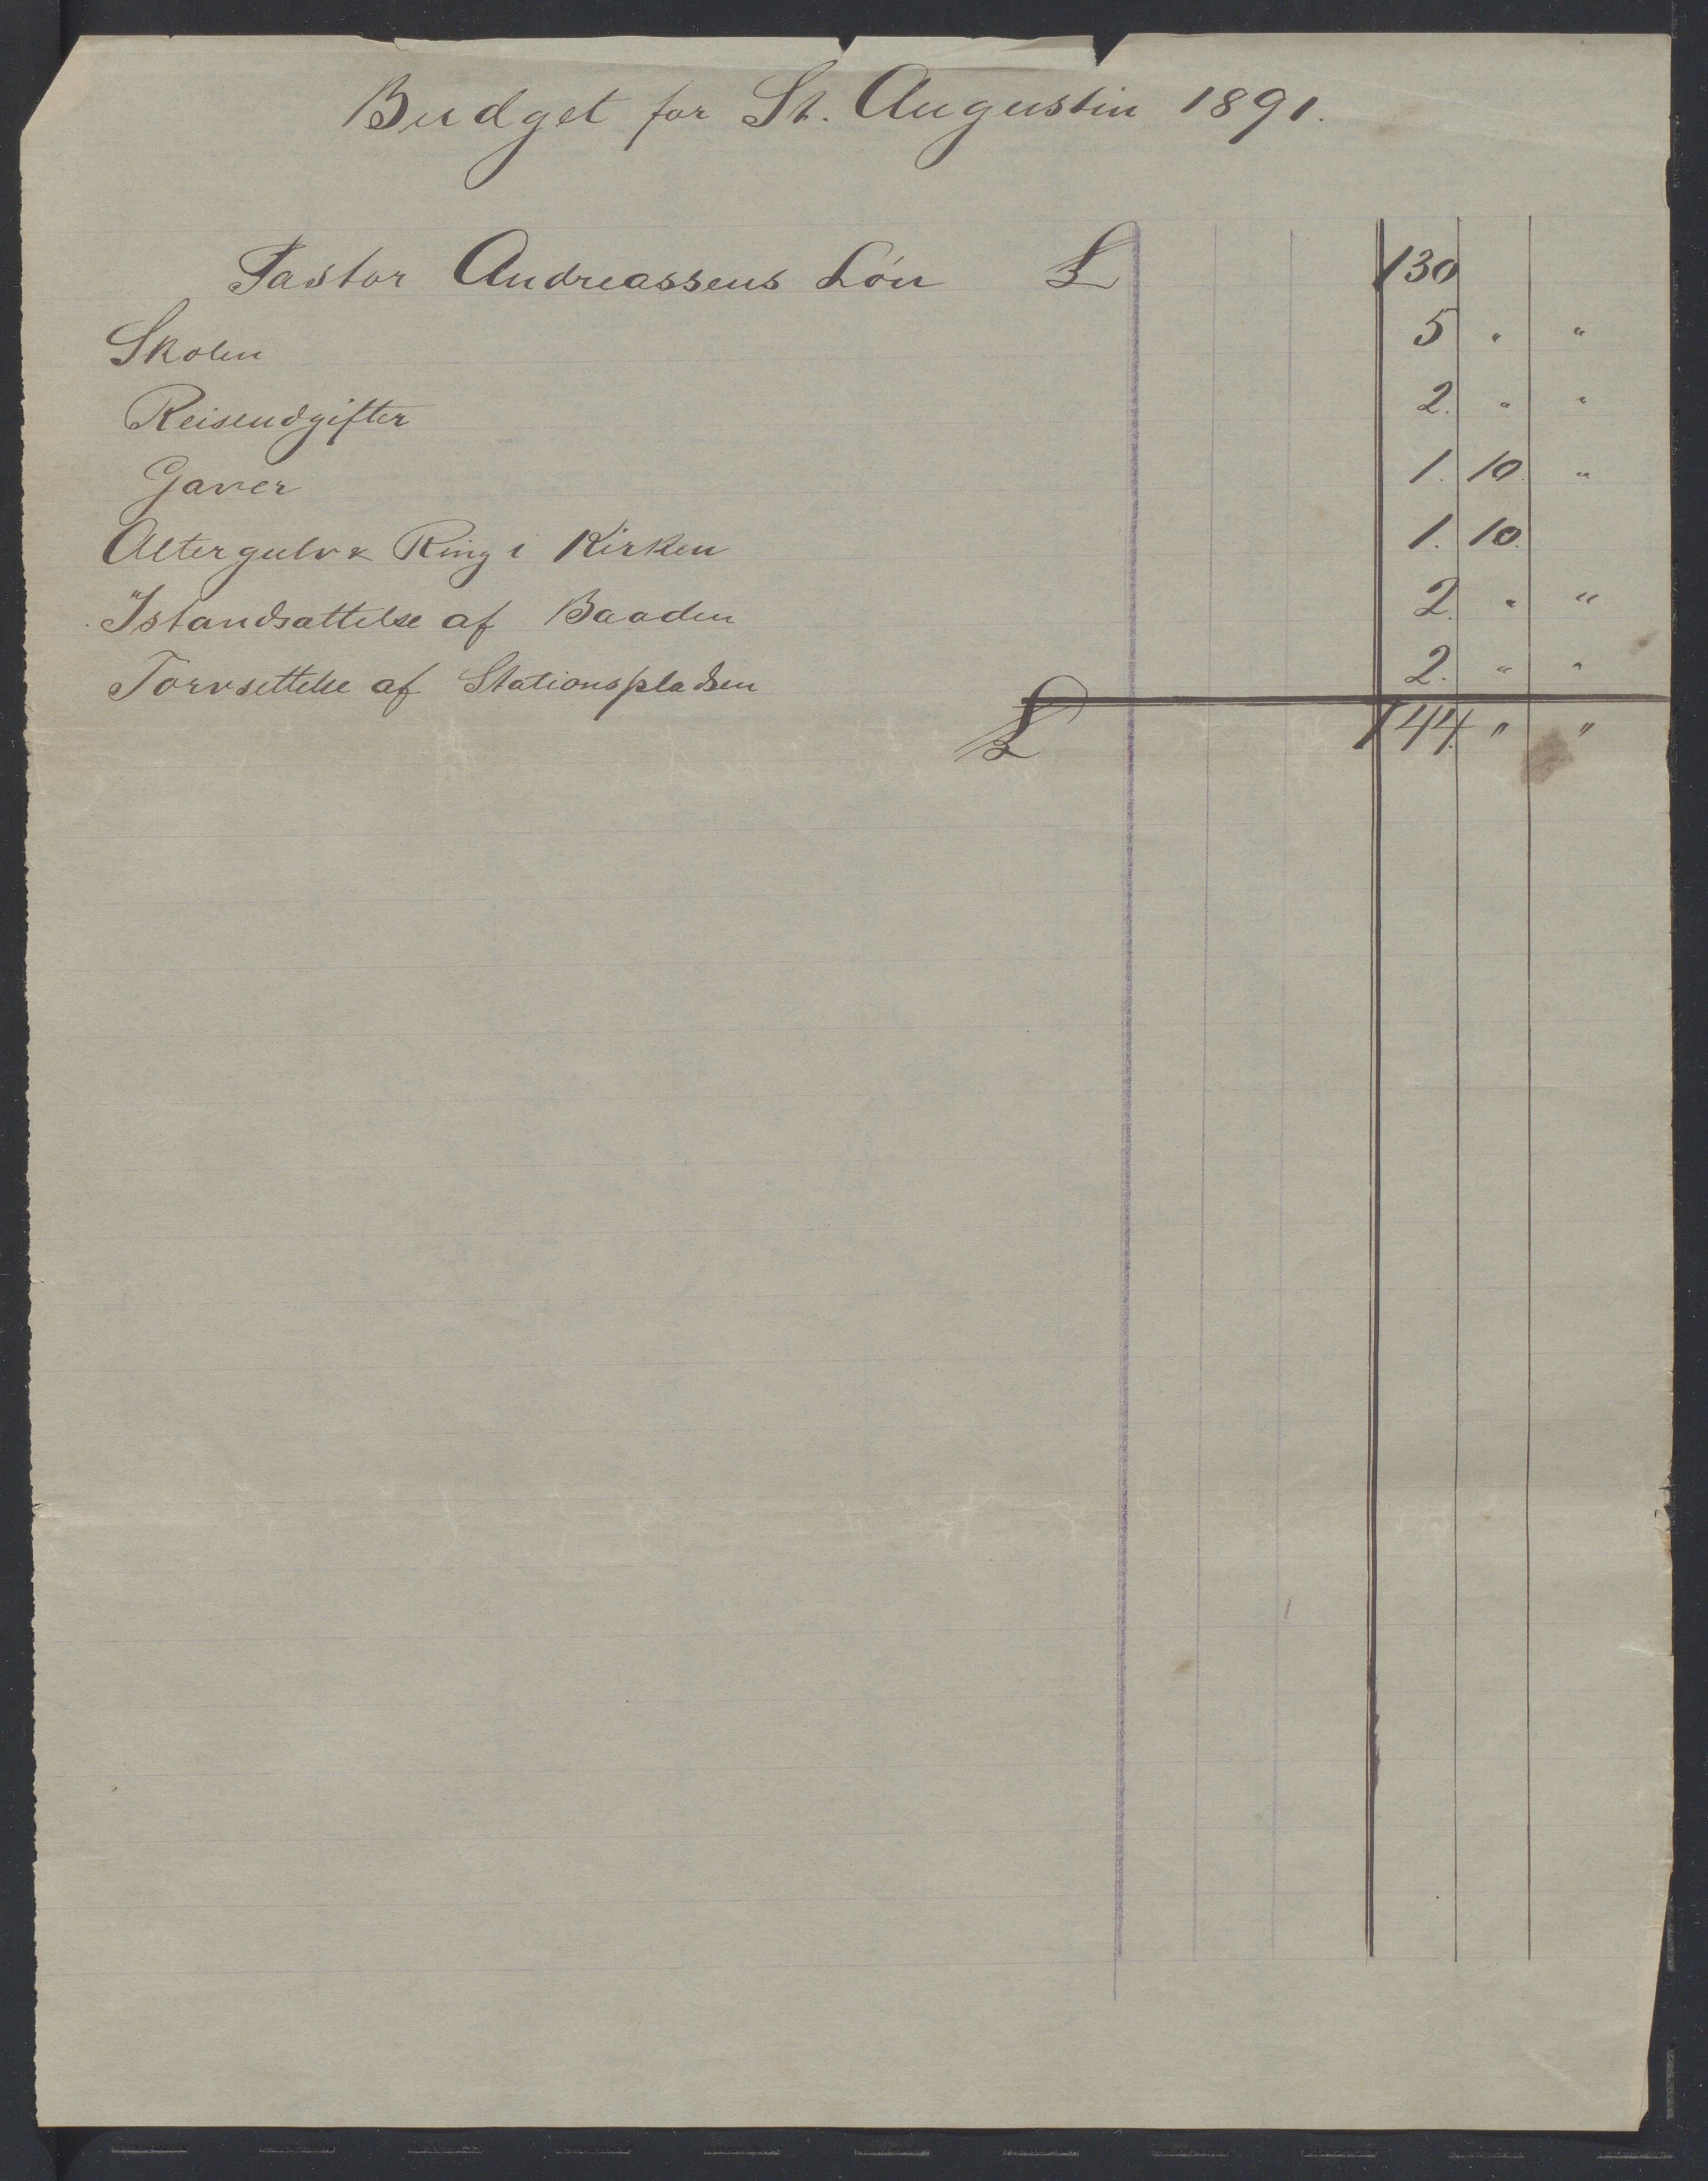 Budget for St. Augustin 1891.
Pastor Andreassens Lön £ 130
Skolen 5 " "
Reiseudgifter 2. " "
Gaver 1. 10. "
Altergulv & Ring i Kirken 1. 10.
Istandsættelse af Baaden 2. " "
Torvsettelse af Stationspladsen 2. " "
£ 144. " "